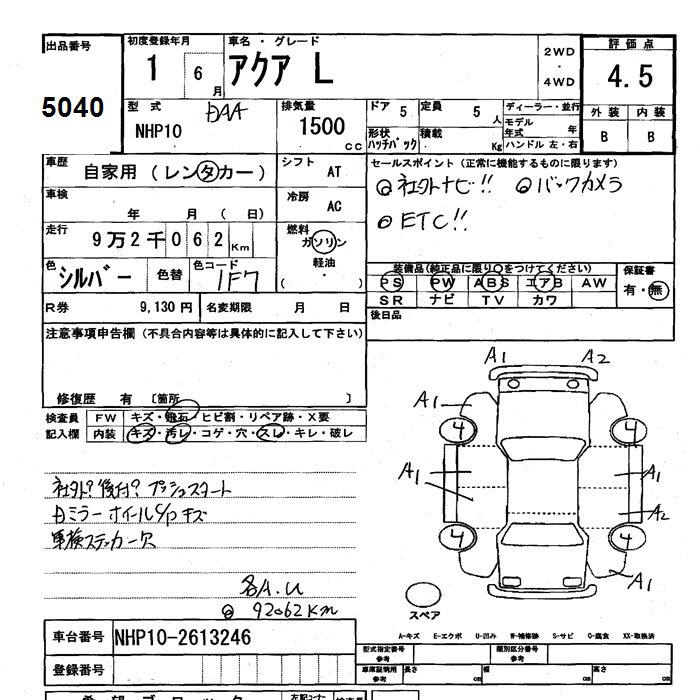 出品番号
5040
初度登録年月
1 6月
車名・グレード
アクア L
2WD
・
4WD
評価点
4.5
外装 内装
B B
型式 DAA
NHP10
排気量
1500
cc
ドア 5
定員 5人
形状 ハッチバック
積載 Kg
ディーラー・並行
モデル年式 年
ハンドル 左・右
車歴
自家用 (レンタカー)
シフト AT
車検 年 月 ( 日)
冷房 AC
走行
9万2千062 Km
燃料
ガソリン
軽油
・
( )
色 シルバー
色替
色コード 1F7
セールスポイント (正常に機能するものに限ります)
◎社外ナビ!! ◎バックカメラ
◎ETC!!
装備品(純正品に限り○をつけてください)
PS PW ABS エアB AW
SR ナビ TV カワ
保証書
有・無
後日品
R券 9,130円
名変期限 月 日
注意事項申告欄 (不具合内容等は具体的に記入して下さい)
修復歴 有 〔箇所 〕
検査員
記入欄
FW キズ・飛石・ヒビ割・リペア跡・X要
内装 キズ・汚レ・コゲ・穴・スレ・キレ・破レ
社外?後付?プッシュスタート
Dミラー ホイールC/P キズ
車検ステッカー欠
各A.U
◎ 92062km
A1 A2
A1
4 4
A1 A1
A2
4 4
A1
スペア
A-キズ E-エクボ U-凹み W-補修跡 S-サビ C-腐食 XX-取換済
車台番号 NHP10-2613246
登録番号
型式指定番号
参考
類別区分番号
参考
車庫証明用
参考
長さ cm
幅 cm
高さ cm
希望ブロック
左記コーナー
検査員